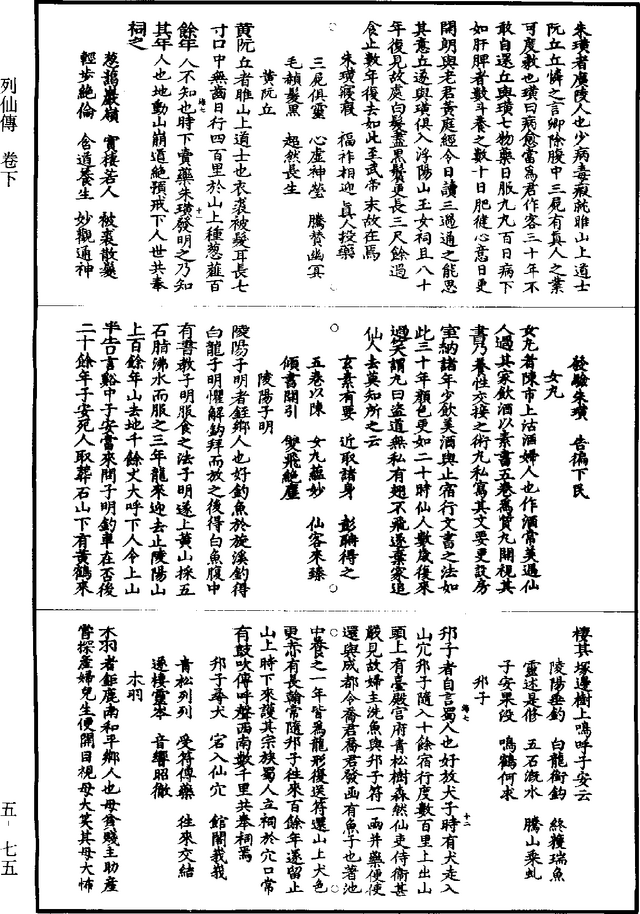 列仙傳　卷下
朱璜者廣陵人也少病毒瘕就睢山上道士
阮丘丘憐之言卿除腹中三尸有真人之業
可度教也璜曰病愈當爲君作客三十年不
敢自還丘與璜七物藥日服九九百日病下
如肝脾者數斗養之數十日肥健心意日更
開朗與老君黃庭經令日讀三過通之能思
其意丘遂與璜俱入浮陽山玉女祠且八十
年復見故處白髮盡黑鬢更長三尺餘過
食止數年復去如此至武帝末故在焉
朱璜寢瘕　福祚相迎　真人投藥
三尸俱靈　心虛神瑩　騰贊幽冥
毛頳髮黑　超然長生
黃阮丘
黃阮丘者睢山上道士也衣裘被髮耳長七
寸口中無齒日行四百里於山上種葱薤百
餘年人不知也時下賣藥朱璜發明之乃知
其年人也地動山崩道絶預戒下人世共奉
祠之
葱藹巖嶺　實棲若人　被裘散髮
輕步絶倫　含道養生　妙觀通神
發驗朱璜　告徧下民
女丸
女丸者陳市上沽酒婦人也作酒常美遇仙
人過其家飲酒以素書五卷爲質丸開視其
書乃養性交接之術丸私寫其文要更設房
室納諸年少飲美酒與止宿行文書之法如
此三十年顏色更如二十時仙人數歲復來
過笑謂丸曰盜道無私有翅不飛遂棄家追
仙人去莫知所之云
玄素有要　近取諸身　彭聃得之
五卷以陳　女丸蘊妙　仙客來臻
傾書開引　雙飛絶塵
陵陽子明
陵陽子明者銍鄉人也好釣魚於旋溪釣得
白龍子明懼解鈎拜而放之後得白魚腹中
有書教子明服食之法子明遂上黃山採五
石脂沸水而服之三年龍來迎去止陵陽山
上百餘年山去地千餘丈大呼下人令上山
半告言谿中子安當來問子明釣車在否後
二十餘年子安死人取葬石山下有黃鶴來
棲其塚邊樹上鳴呼子安云
陵陽垂釣　白龍銜鈎　終獲瑞魚
靈述是修　五石漑水　騰山乘虬
子安果沒　鳴鶴何求
邗子
邗子者自言蜀人也好放犬子時有犬走入
山穴邗子隨入十餘宿行度數百里上出山
頭上有臺殿宮府青松樹森然仙吏侍衛甚
嚴見故婦主洗魚與邗子符一函并藥便使
還與成都令喬君喬君發函有魚子也著池
中養之一年皆爲龍形復送符還山上犬色
更赤有長翰常隨邗子往來百餘年遂留止
山上時下來護其宗族蜀人立祠於穴口常
有鼓吹傳呼聲西南數千里共奉祠焉
邗子尋犬　宕入仙穴　館閣峩峩
青松列列　受符傳藥　往來交結
遂棲靈岑　音響昭徹
木羽
木羽者鉅鹿南和平鄉人也母貧賤主助產
嘗探產婦兒生便開目視母大笑其母大怖
五－七五